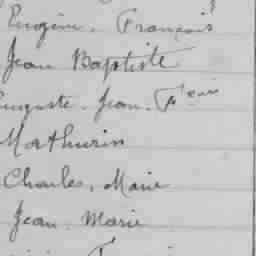 Eugène. François
Jean Baptiste
Auguste. Jean.
Mathurin
Charles. Marie
Jean. Marie